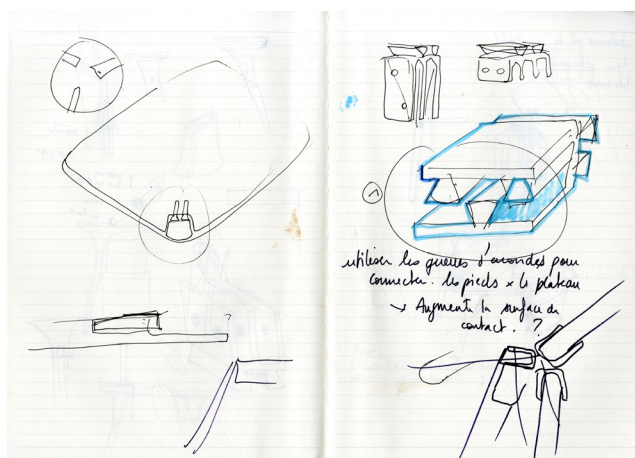 ?
1
utiliser les queues d'arondes pour
connecter. les pieds x le plateau
→ Augmente la surface de
contact. ?